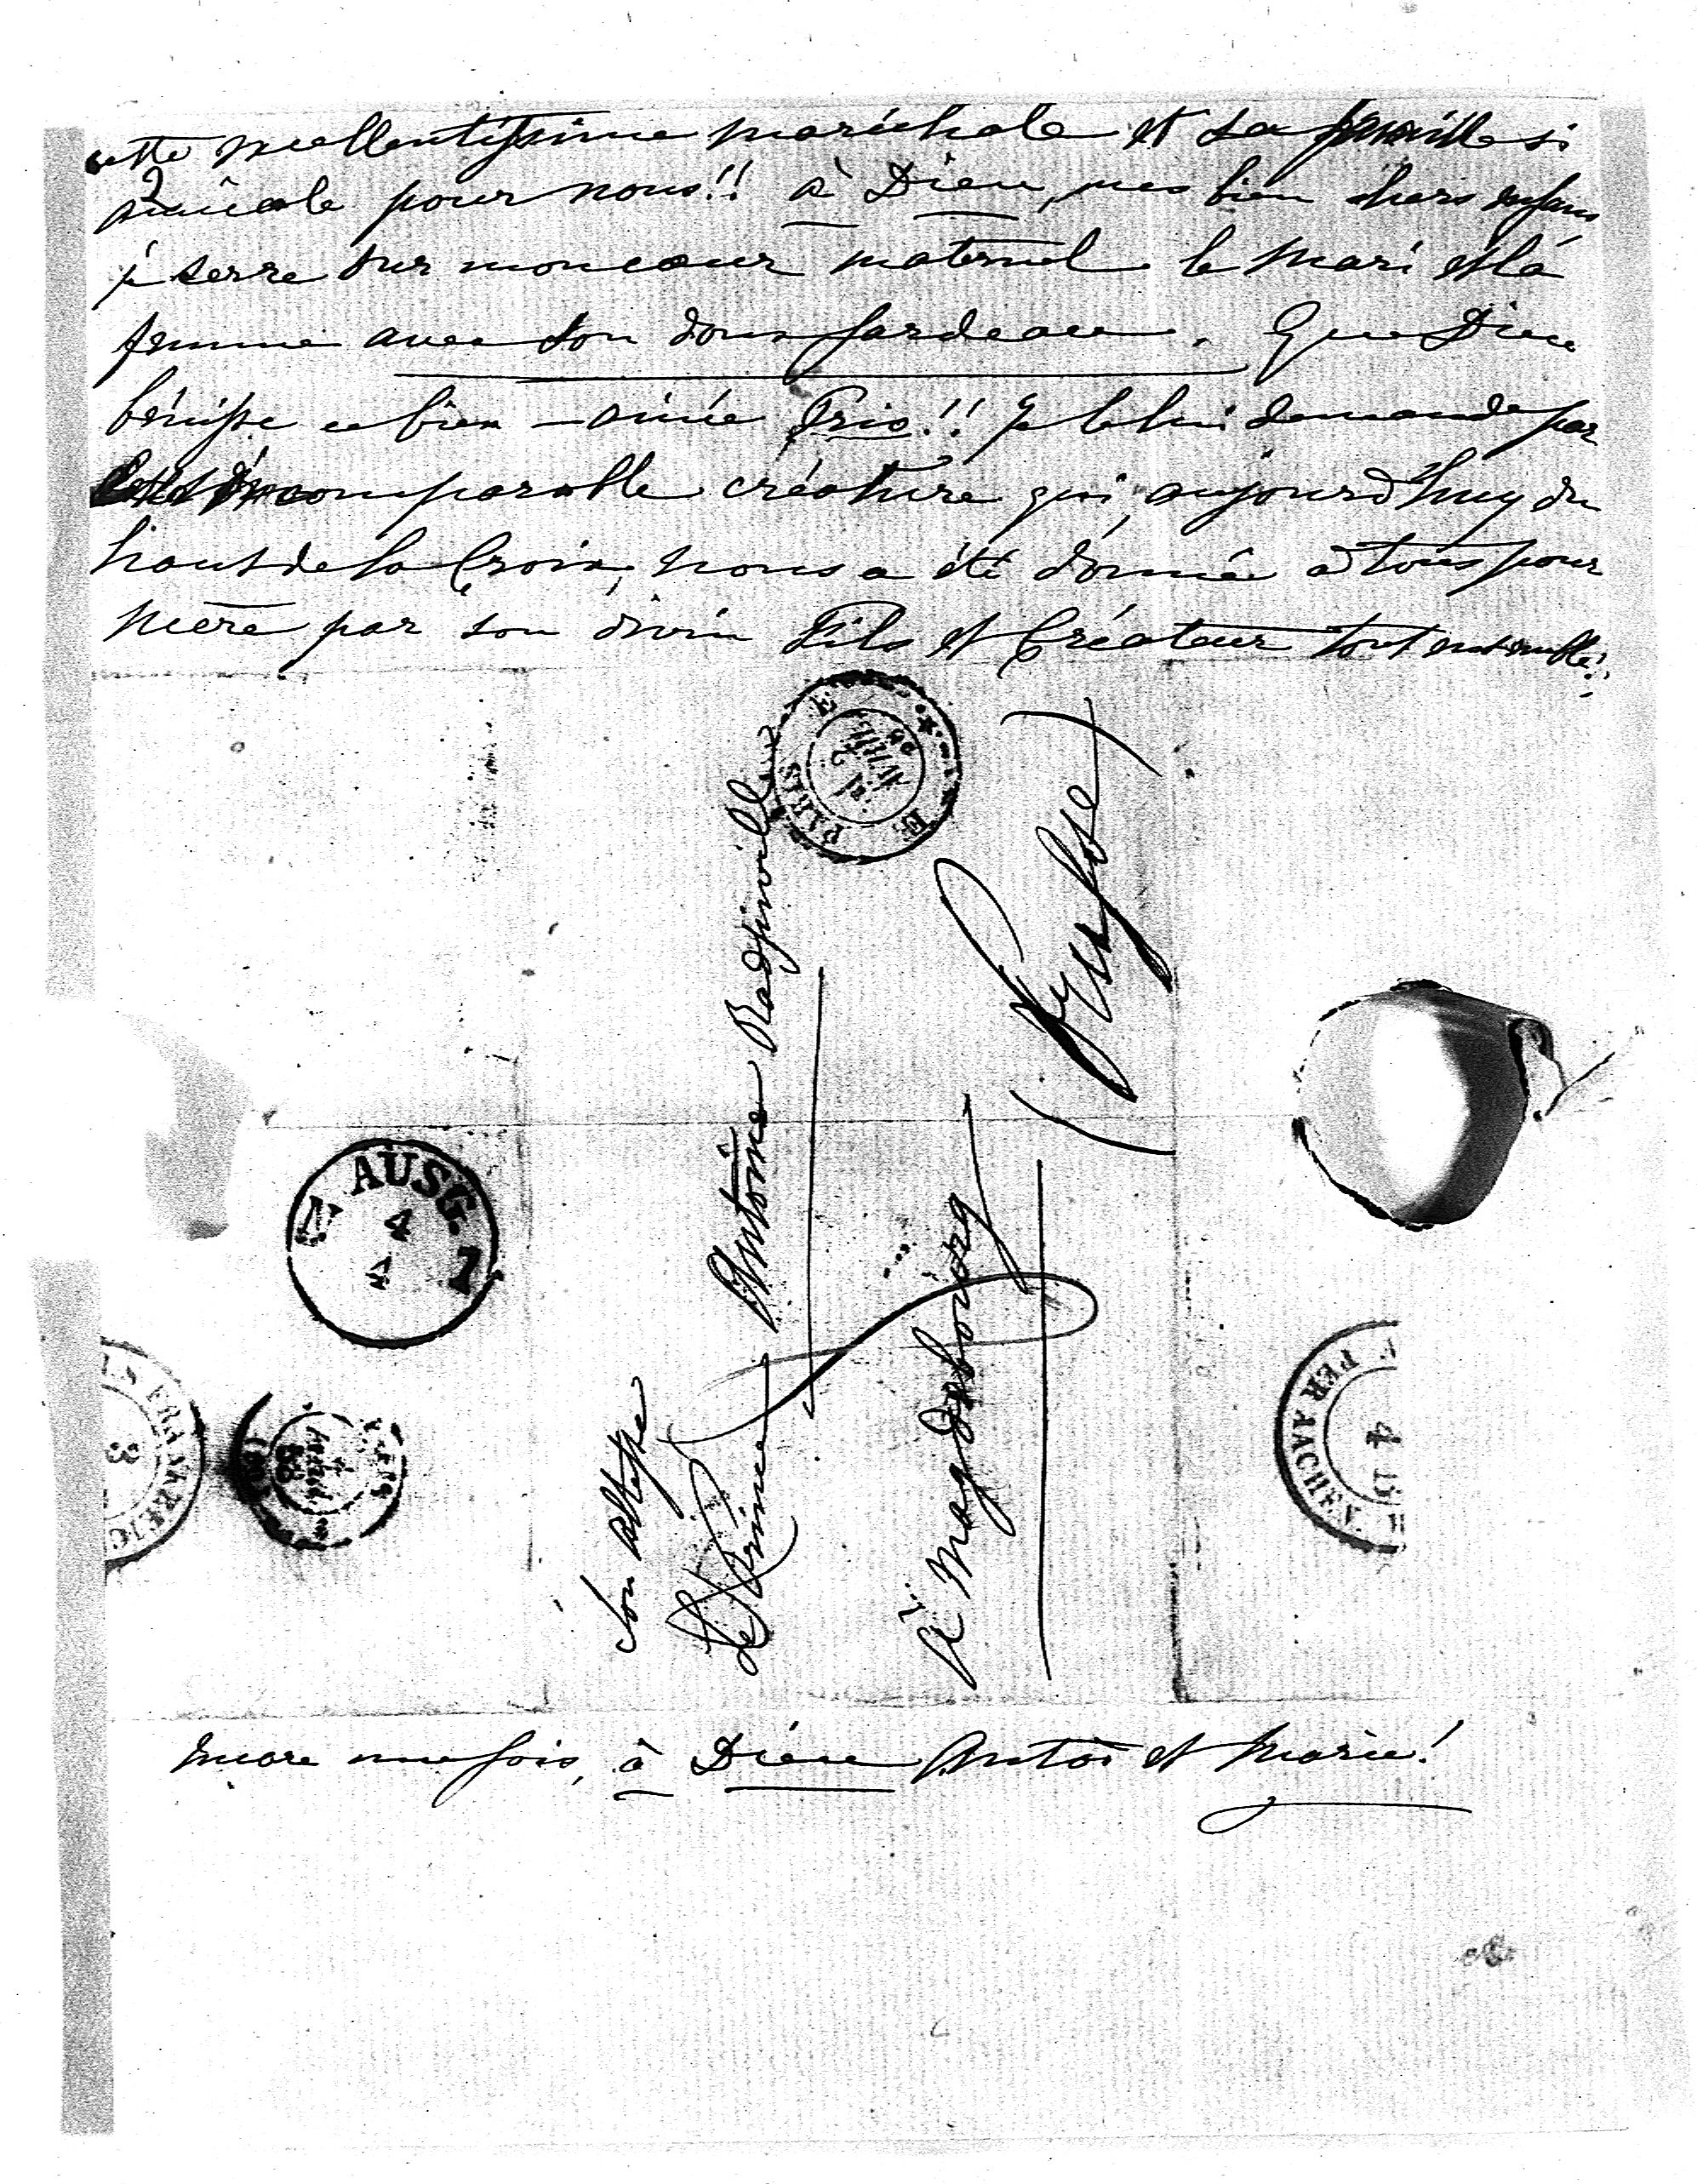 cette excellentissime maréchale et sa famille si
amicale pour nous!! à Dieu, mes bien chers enfans
je serre sur mon cœur maternel le mari et la
femme avec son doux fardeau. Que Dieu
bénisse ce bien-aimé Trio!! Je le lui demande par
incomparable créature qui, aujourd'huy du
haut de la Croix, nous a été donnée à tous pour
mère par son divin Fils et Créateur tout ensemble!
PARIS
2
AVRIL
E
E
Son Altesse
Le Prince Antoine Radziwill
à Magdebourg
(Prusse)
AUSG.
N 1
4
4
3
PARIS
FER AACHEN
4
encore une fois, à Dieu Antoi et Marie!